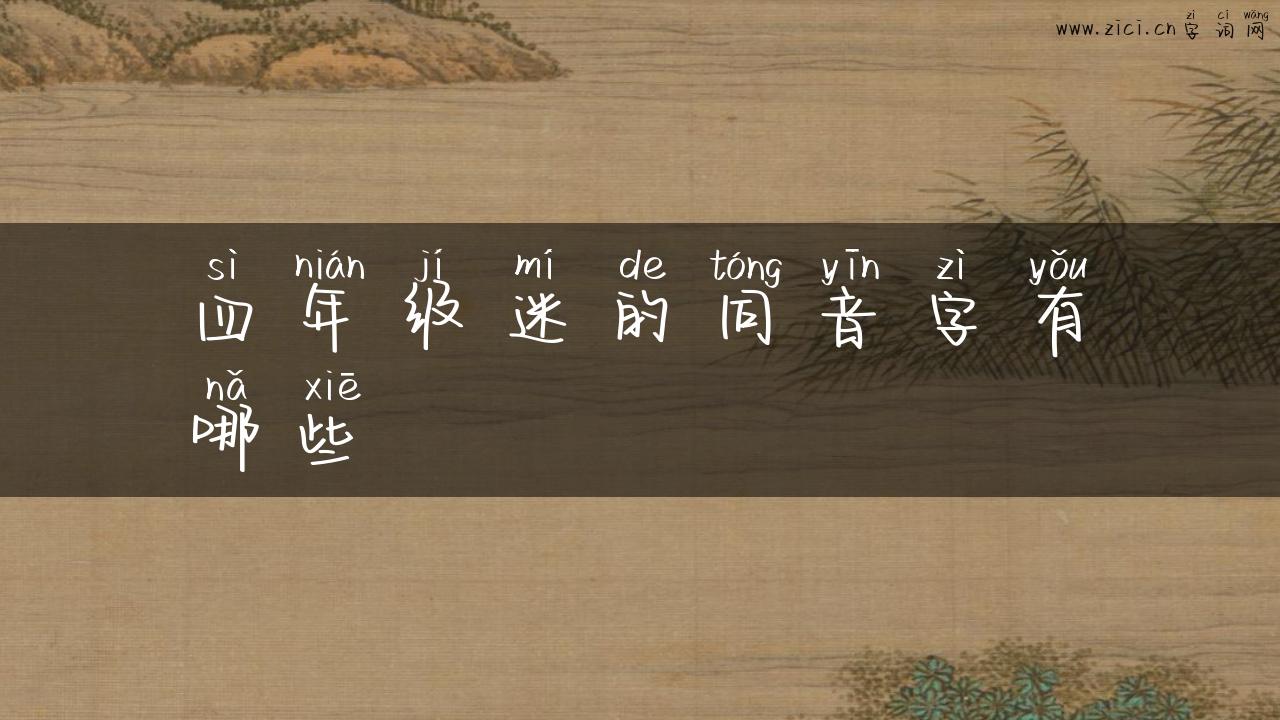 zì cí wǎng
www.zici.cn 字 词 网
sì nián jí mí de tóng yīn zì yǒu
四 年 级 迷 的 同 音 字 有
nǎ xiē
哪 些